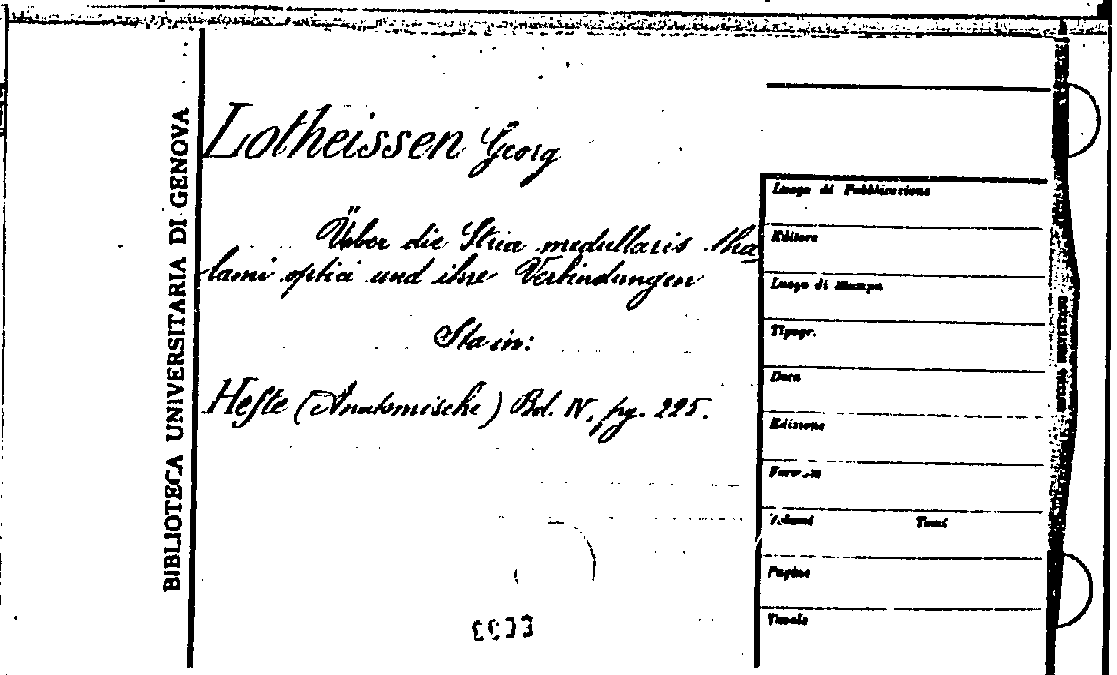 BIBLIOTECA UNIVERSITARIA DI GENOVA
Lotheissen Georg
Über die Stria medullaris tha
lami optici und ihre Verbindungen
Sta in:
Hefte (Anatomische) Bd. IV, pg. 225.
Luogo di Pubblicazione
Editore
Luogo di stampa
Tipogr.
Data
Edizione
Formato
Volumi Tomi
Pagine
Tavole